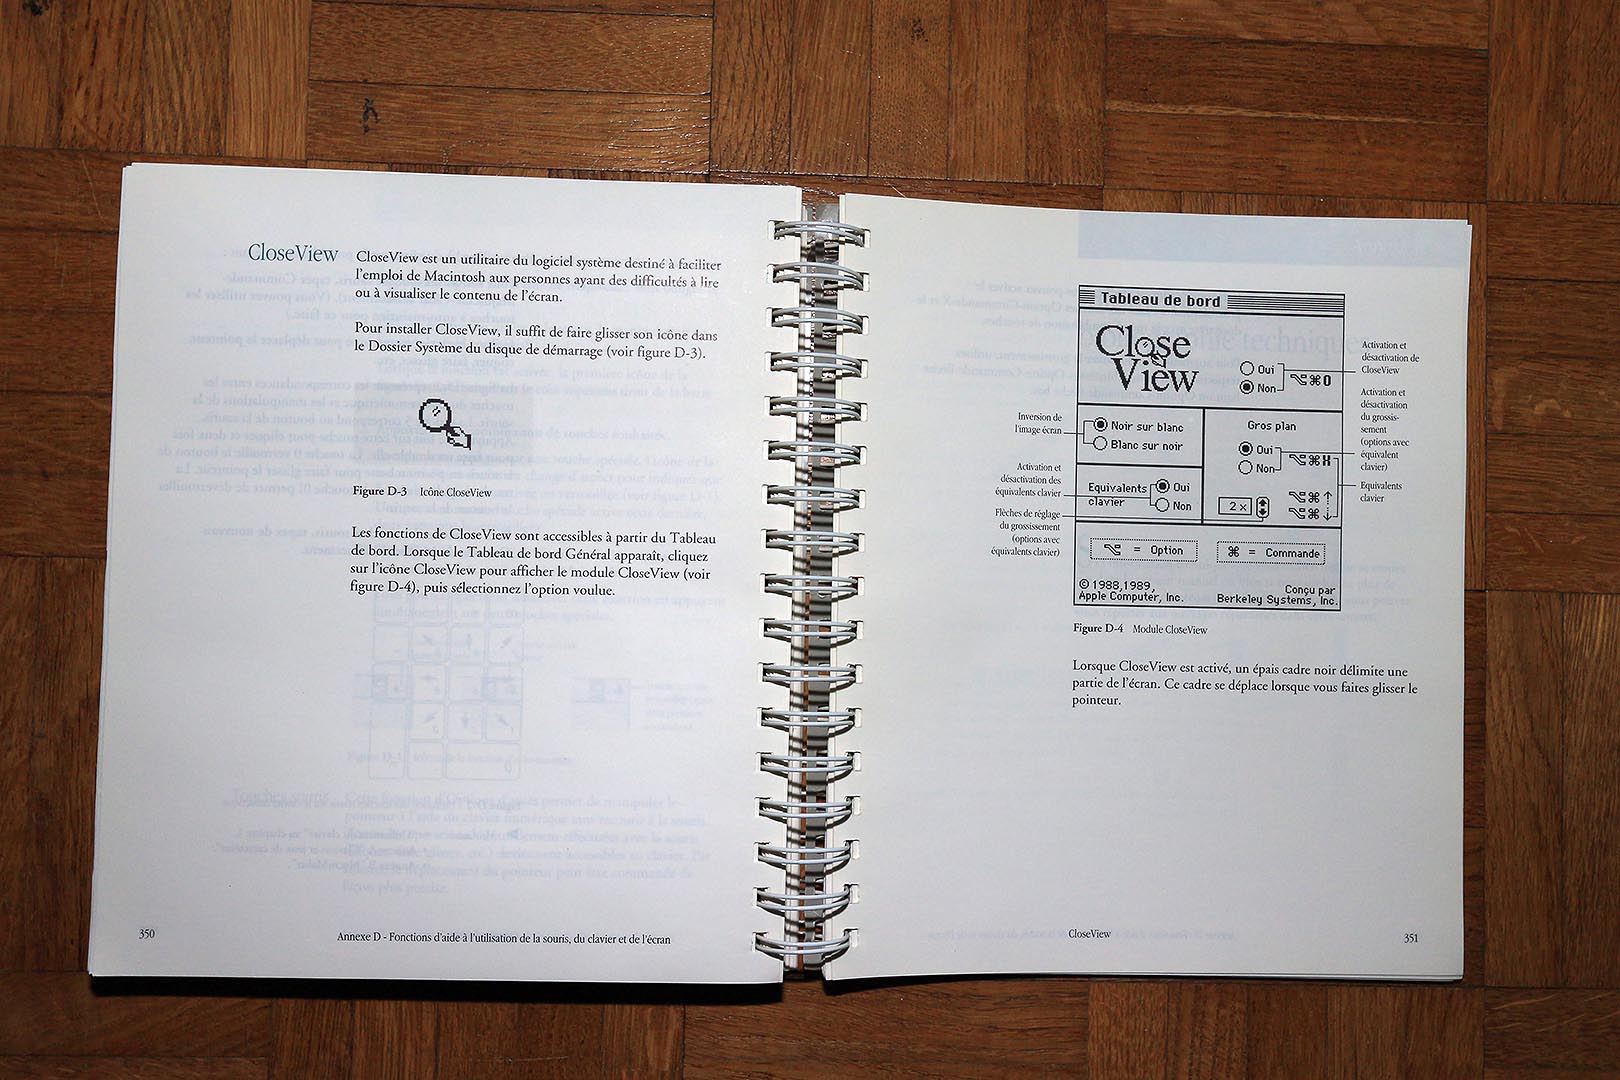 CloseView
CloseView est un utilitaire du logiciel système destiné à faciliter
l'emploi de Macintosh aux personnes ayant des difficultés à lire
ou à visualiser le contenu de l'écran.
Pour installer CloseView, il suffit de faire glisser son icône dans
le Dossier Système du disque de démarrage (voir figure D-3).
Figure D-3 Icône CloseView
Les fonctions de CloseView sont accessibles à partir du Tableau
de bord. Lorsque le Tableau de bord Général apparaît, cliquez
sur l'icône CloseView pour afficher le module CloseView (voir
figure D-4), puis sélectionnez l'option voulue.
350
Annexe D - Fonctions d'aide à l'utilisation de la souris, du clavier et de l'écran
Tableau de bord
Close
View
Oui
Non
⌥⌘O
Activation et
désactivation de
CloseView
Inversion de
l'image écran
Noir sur blanc
Blanc sur noir
Gros plan
Oui
Non
⌥⌘X
Activation et
désactivation
du grossis-
sement
(options avec
équivalent
clavier)
Activation et
désactivation des
équivalents clavier
Equivalents
clavier
Oui
Non
2 x
⌥⌘↑
⌥⌘↓
Equivalents
clavier
Flèches de réglage
du grossissement
(options avec
équivalents clavier)
⌥ = Option
⌘ = Commande
© 1988,1989,
Apple Computer, Inc.
Conçu par
Berkeley Systems, Inc.
Figure D-4 Module CloseView
Lorsque CloseView est activé, un épais cadre noir délimite une
partie de l'écran. Ce cadre se déplace lorsque vous faites glisser le
pointeur.
CloseView
351